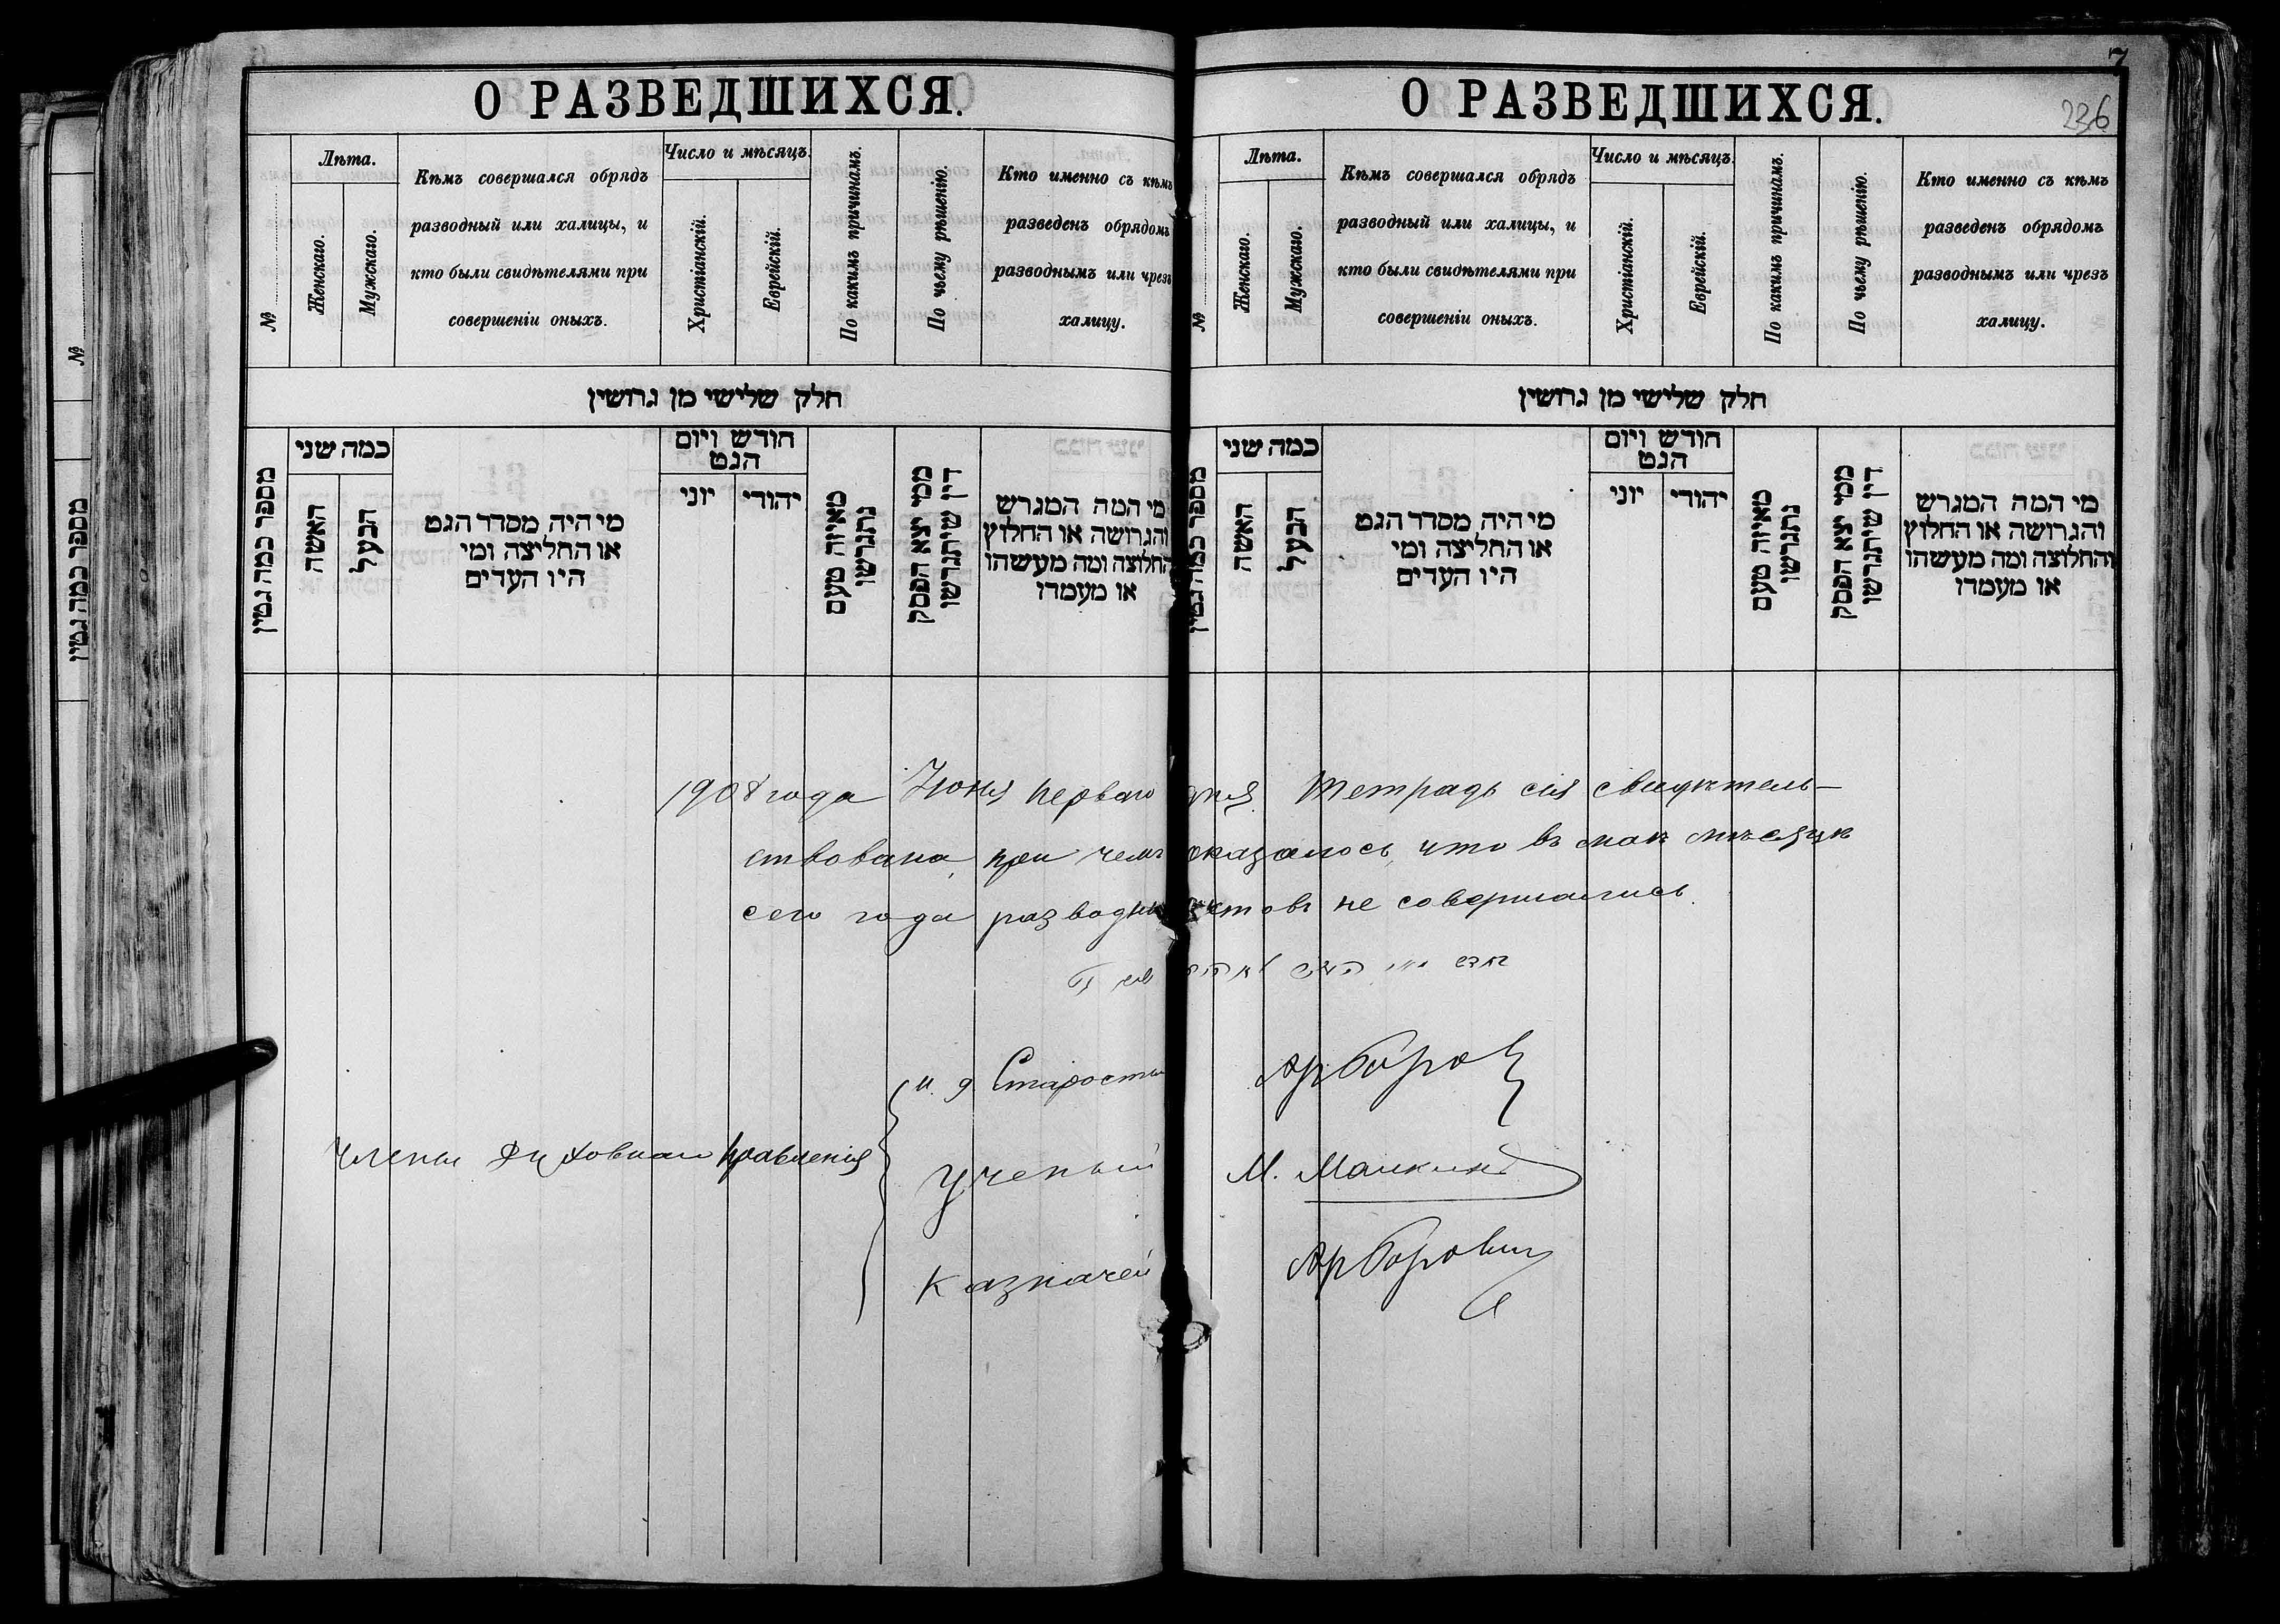 О РАЗВЕДШИХСЯ.
№
Лѣта.
Женскаго.
Мужскаго.
Кѣмъ совершался обрядъ
разводный или халицы, и
кто были свидѣтелями при
совершеніи оныхъ.
Число и мѣсяцъ.
Христіанскій.
Еврейскій.
По какимъ причинамъ.
По чьему рѣшенію.
Кто именно съ кѣмъ
разведенъ обрядомъ
разводнымъ или чрезъ
халицу.
חלק שלישי מן גרושין
מספר כמה גטין
כמה שני
האשה
הבעל
מי היה מסדר הגט
או החליצה ומי
היו העדים
חודש ויום
הגט
יוני
יהודי
מאיזה טעם
נתגרשו
ממי יצא הפסק
דין שיתגרשו
מי המה המגרש
והגרושה או החלוץ
והחלוצה ומה מעשהו
או מעמדו
7
236
О РАЗВЕДШИХСЯ.
№
Лѣта.
Женскаго.
Мужскаго.
Кѣмъ совершался обрядъ
разводный или халицы, и
кто были свидѣтелями при
совершеніи оныхъ.
Число и мѣсяцъ.
Христіанскій.
Еврейскій.
По какимъ причинамъ.
По чьему рѣшенію.
Кто именно съ кѣмъ
разведенъ обрядомъ
разводнымъ или чрезъ
халицу.
חלק שלישי מן גרושין
מספר כמה גטין
כמה שני
האשה
הבעל
מי היה מסדר הגט
או החליצה ומי
היו העדים
חודש ויום
הגט
יוני
יהודי
מאיזה טעם
נתגרשו
ממי יצא הפסק
דין שיתגרשו
מי המה המגרש
והגרושה או החלוץ
והחלוצה ומה מעשהו
או מעמדו
1908 года Іюня перваго дня Тетрадь сія свидѣтель-
ствована, при чемъ оказалось, что въ маѣ мѣсяцѣ
сего года разводныхъ актовъ не совершались.
и. д. Старосты
Члены Духовнаго Правленія
Ученый М. Малкинъ
Казначей
№
מספר כמה גטין